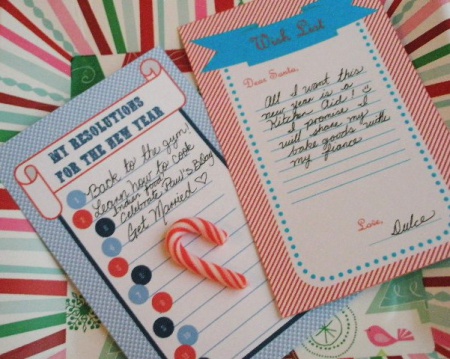 MY RESOLUTIONS
FOR THE NEW YEAR
Back to the gym!
Learn how to cook
Indian food
Celebrate Bday
Get Married ♡
Wish List
Dear Santa,
All I want this
new year is a
Kitchen Aid!
I promise I
will share my
bake goods with
my fiance
Love,
Dulce